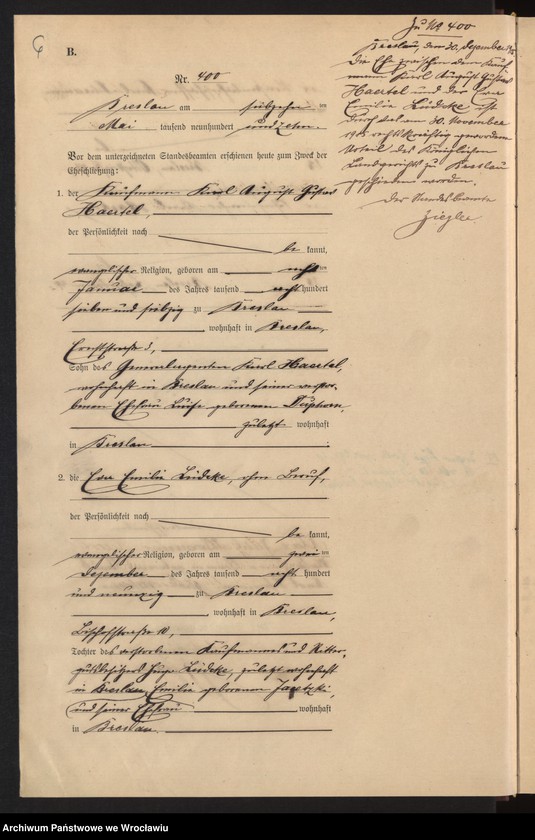 6
B.
Nr. 400
Breslau am siebzehn ten
Mai tausend neunhundert
Vor dem unterzeichneten Standesbeamten erschienen heute zum Zweck der
Eheschließung:
1. der Kaufmann Karl August Gustav
Haertel,
der Persönlichkeit nach
be kannt,
evangelischer Religion, geboren am acht ten
Januar des Jahres tausend acht hundert
sieben und siebzig zu Breslau
, wohnhaft in Breslau,
Ernststraße
Sohn des Generalagenten Karl Haertel,
wohnhaft in Breslau und seiner verstor-
benen Ehefrau Luise geborenen
zuletzt wohnhaft
in Breslau.
2. die Eva Emilie Lüdeke, ohne Beruf,
der Persönlichkeit nach
be kannt,
evangelischer Religion, geboren am zwei ten
Dezember des Jahres tausend acht hundert
und neunzig zu Breslau
, wohnhaft in Breslau,
Bischofstraße 10,
Tochter des verstorbenen Kaufmannes und Ritter-
gutsbesitzers Hugo Lüdeke, zuletzt wohnhaft
in Breslau, Emilie geborenen
und seiner Ehefrau wohnhaft
in Breslau.
Zu Nr. 400
Breslau, den 30. Dezember
Die Ehe zwischen dem Kauf-
mann Karl August Gustav
Haertel und der Eva
Emilie Lüdeke ist
durch das am 30. November
rechtskräftig gewordene
Urteil des Königlichen
Landgerichts zu Breslau
geschieden worden.
Der Standesbeamte
Ziegler
Archiwum Państwowe we Wrocławiu